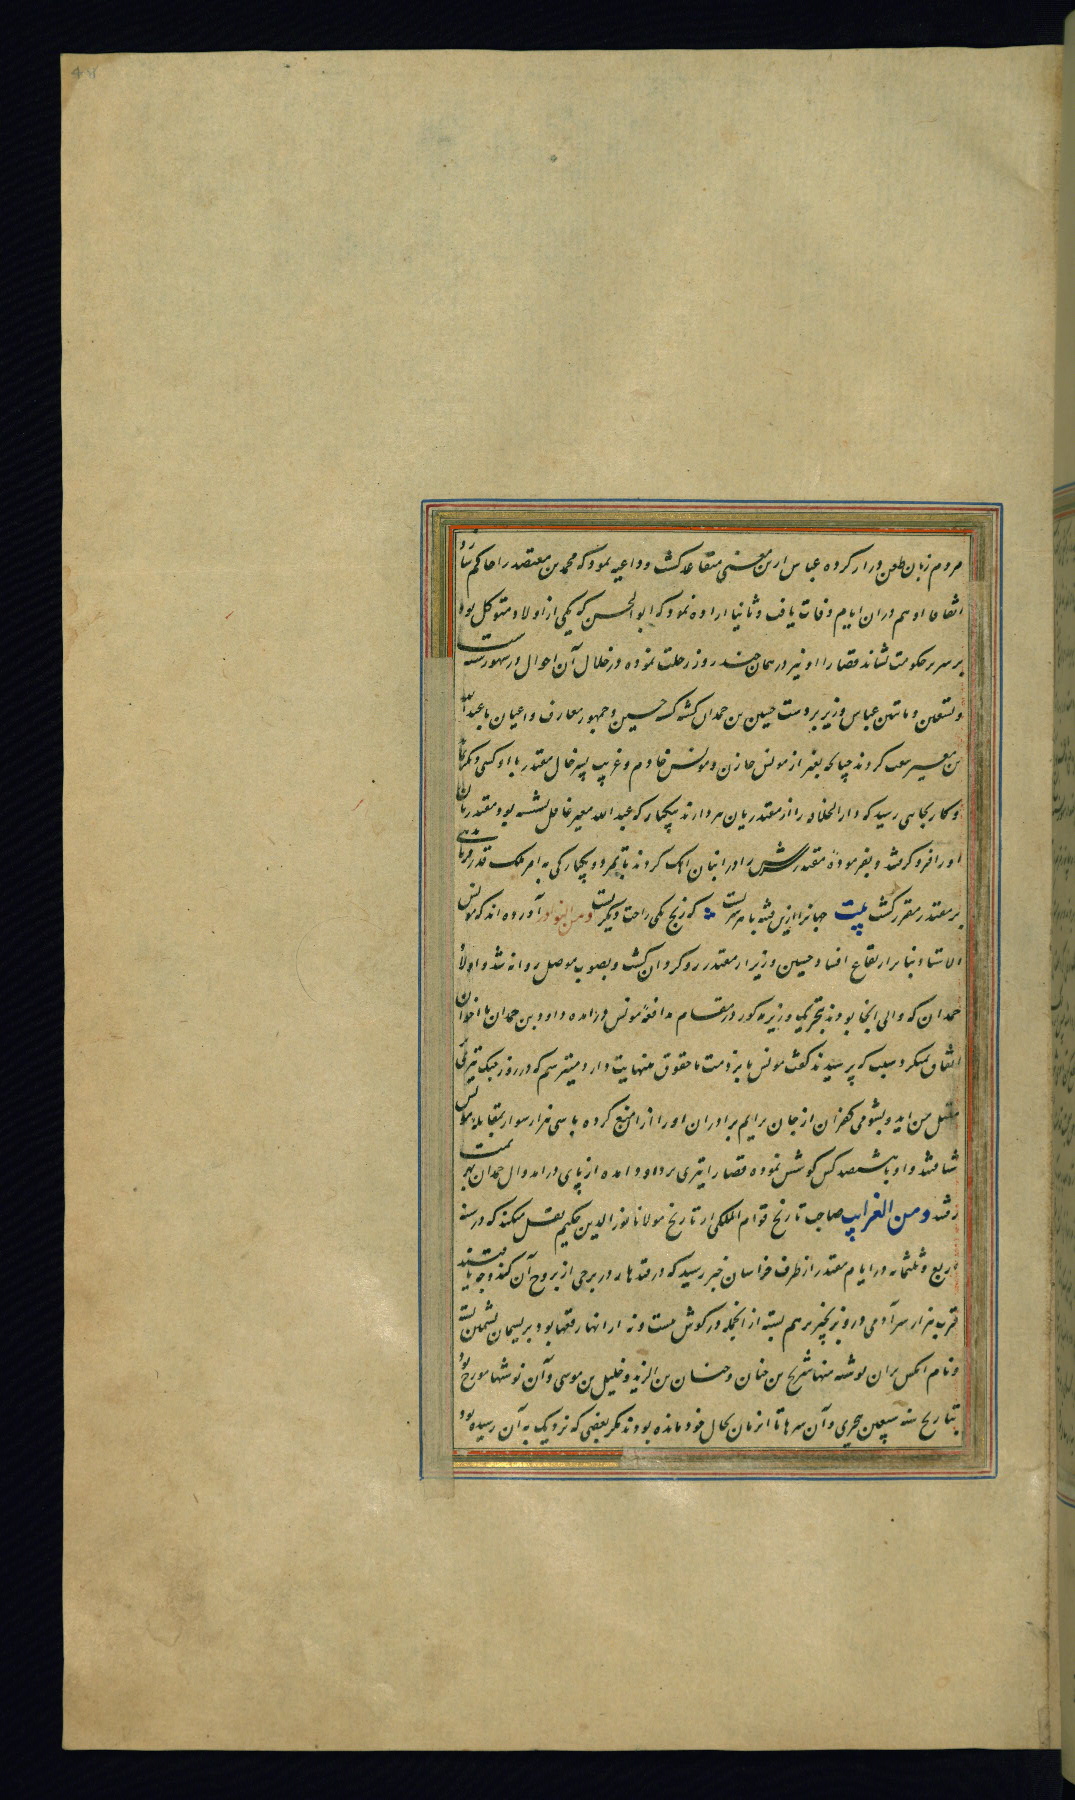 مردم زبان طعن دراز کرده عباس ازین معنی متقاعد گشت و داعیه نمود که محمد بن معتضد را حاکم سازد
اتفاقا او هم در ان ایام وفات یافت و ثانیا اراده نمود که ابوالحسن که یکی از اولاد متوکل بود
بر سریر حکومت نشاند قضا را او نیز در همان چند روز رحلت نموده در خلال آن احوال در شهور سنه ست
و تسعین و ماتین عباس وزیر بر دست حسین بن حمدان کشته گشته حسین و جمهور معارف و اعیان با عبد الله
بن معتز بیعت کردند چنانکه بغیر از مونس خازن و مونس خادم و غریب پسر خال مقتدر با او کسی دیگر نماند
و کار بجایی رسید که دار الخلافه را از مقتدریان بردارند بیکبار که عبد الله معتز غافل نشسته بود مقتدریان
او را فرو گرفتند و بفرموده مقتدر او را کردند تا بمرد و بیکبارگی امر ملک
بر مقتدر مقرر گشت بیت جهانرا ازین که رنج یکی راحت دیگریست و من النوادر آورده اند که مونس
الاستاد بنا بر ارتفاع افتاد حسین وزیر از مقتدر رو گردان گشت و بصوب موصل روانه شد و اولاد
حمدان که والی انجا بودند بتحریک وزیر مذکور در مقام مدافعهٔ مونس در آمده داود بن حمدان با اخوان
اتفاق نمیکرد سبب که پرسیدند گفت مونس را بر ذمت ما حقوق بینهایت دارد میترسم که در روز جنگ تیری
بمقتل من اید و بشومی کفران از جان برایم برادران او را از امنع کرده با سی هزار سوار بمقابلهٔ مونس
شتافتند و او با هشتصد کس کوشش نموده قضا را تیری بر داود امده از پای در امد و ال حمدان بهزیمت
رفتند و من الغرایب صاحب تاریخ قوام الملکی از تاریخ مولانا نور الدین حکیم نقل میکند که در سنه
اربع و ثلثمائه در ایام مقتدر از طرف خراسان خبر رسید که در قندهار در برجی از بروج آن کند وجه یافتند
قرب هزار سر آدمی در و بزنجیر بر هم بسته از انجمله در گوش بیست و نه از انها رقعها بود بریسمان بشمین بسته
و نام انکس بران نوشته منها شریح بن حنان و حنان بن الزید و خلیل بن موسی و آن نوشتها مورخ بود
بتاریخ سنه سبعین هجری و آن سرها تا انزمان بحال خود مانده بودند مگر بعضی که نزدیک به آن رسیده بود